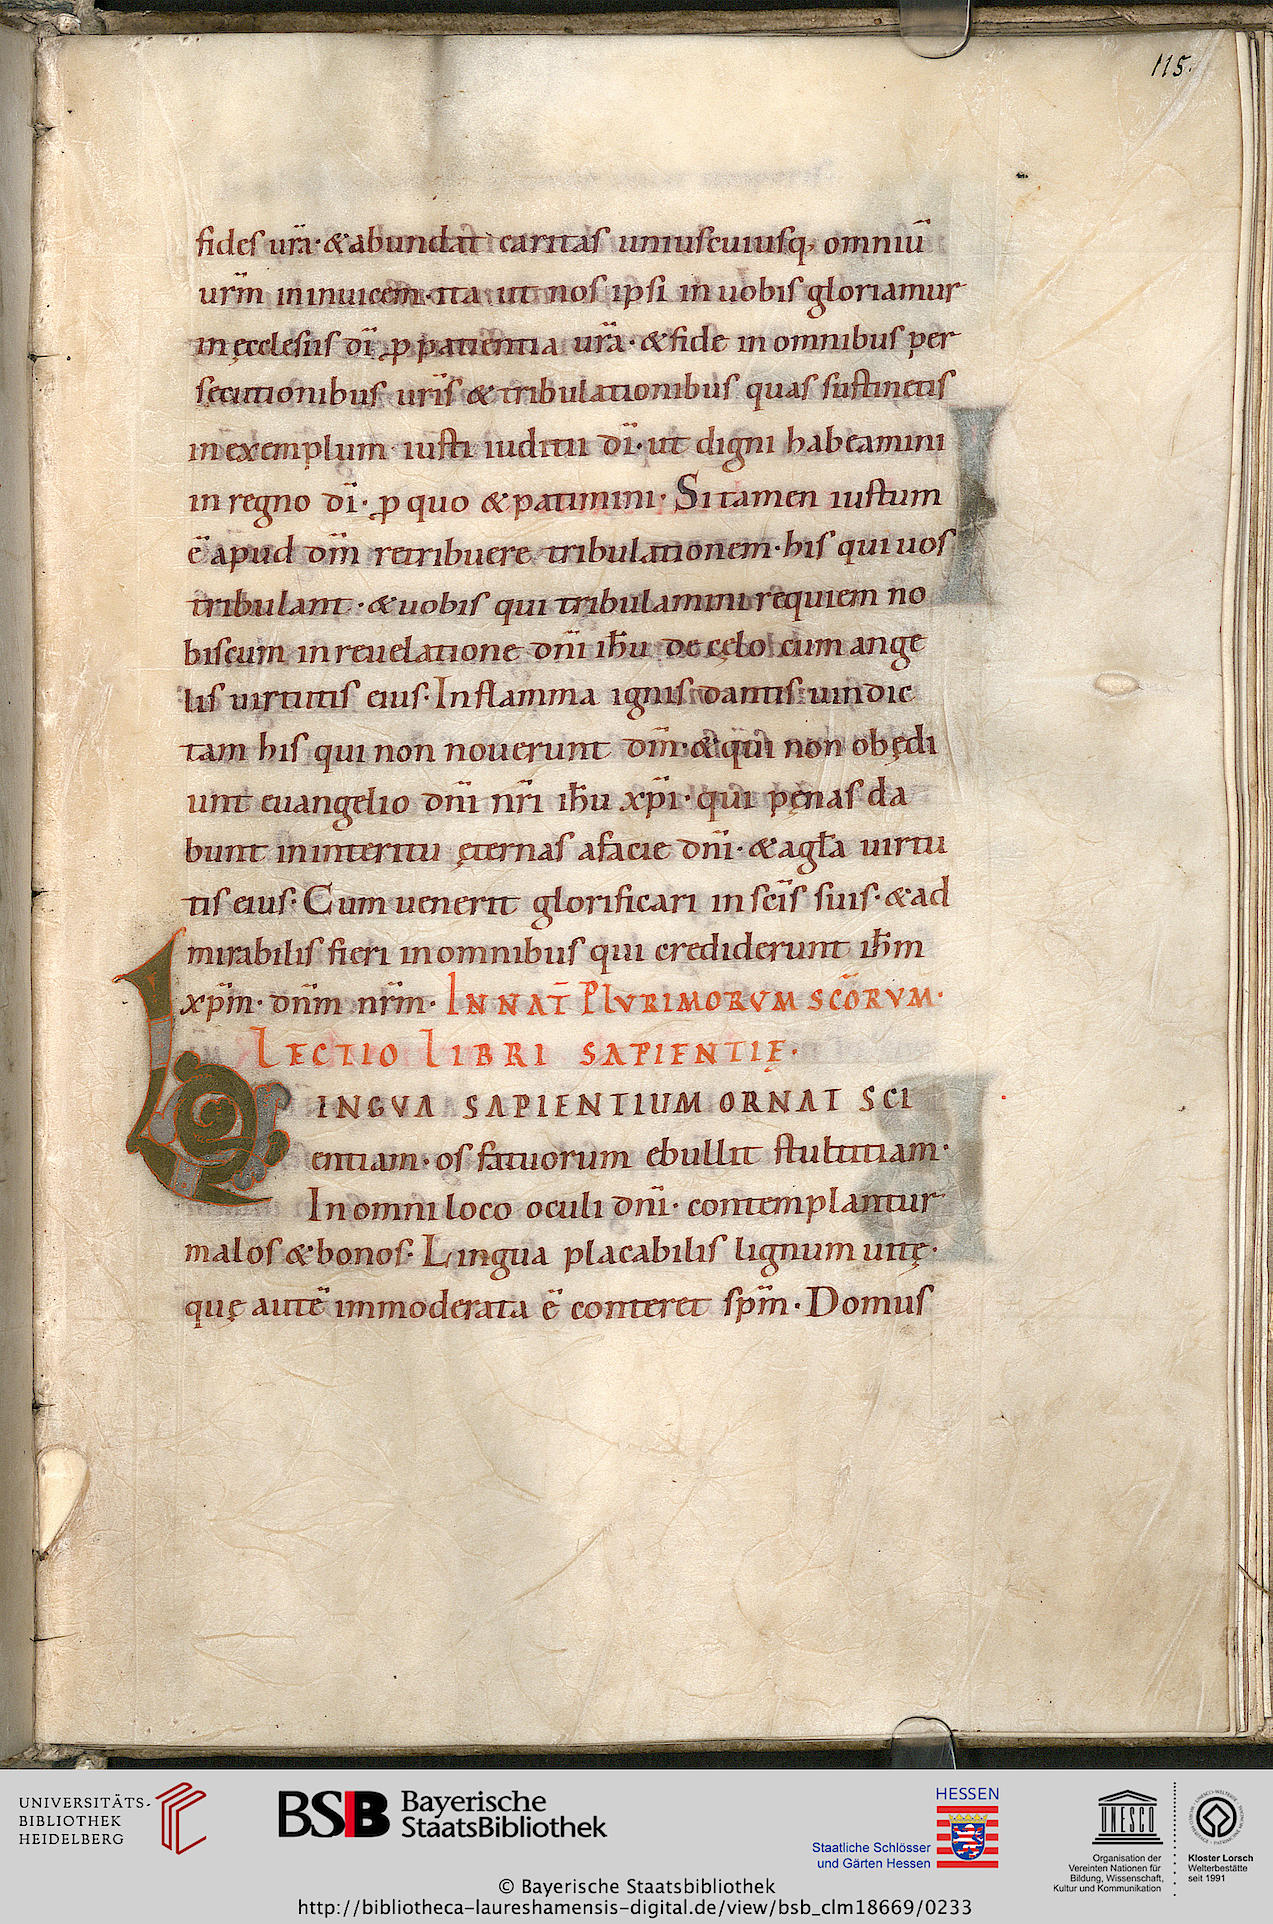 115.
fides ur̄a· & abundat caritas uniuscuiusq; omniū
ur̄m in inuicem· ita ut nos ipsi in uobis gloriamur
in ęcclesiis dī p̱ patientia ur̄a· & fide in omnibus per
secutionibus ur̄is & tribulationibus quas sustinetis
in exemplum iusti iuditii dī· ut digni habeamini
in regno dī· p̱ quo & patimini· Si tamen iustum
ē apud dm̄ retribuere tribulationem· his qui uos
tribulant· & uobis qui tribulamini requiem no
biscum in reuelatione dn̄i ih̄u de cęlo cum ange
lis uirtutis eius· In flamma ignis dantis uindic
tam his qui non nouerunt dm̄· & qui non obędi
unt euangelio dn̄i nr̄i ih̄u xp̄i· qui pęnas da
bunt in interitu ęternas a facie dn̄i· & a gl̄a uirtu
tis eius· Cum uenerit glorificari in sc̄is suis· & ad
mirabilis fieri in omnibus qui crediderunt ih̄m
xp̄m· dn̄m nr̄m· IN NAT̄ PLURIMORVM SCŌRVM·
LECTIO LIBRI SAPIENTIĘ·
LINGVA SAPIENTIUM ORNAT SCI
entiam· os fatuorum ebullit stultitiam·
In omni loco oculi dn̄i· contemplantur
malos & bonos· Lingua placabilis lignum uitę·
quę autē immoderata ē conteret sp̄m· Domus
UNIVERSITÄTS-
BIBLIOTHEK
HEIDELBERG
BSB Bayerische
StaatsBibliothek
HESSEN
Staatliche Schlösser
und Gärten Hessen
UNESCO
Organisation der
Vereinten Nationen für
Bildung, Wissenschaft,
Kultur und Kommunikation
Kloster Lorsch
Welterbestätte
seit 1991
© Bayerische Staatsbibliothek
http://bibliotheca-laureshamensis-digital.de/view/bsb_clm18669/0233